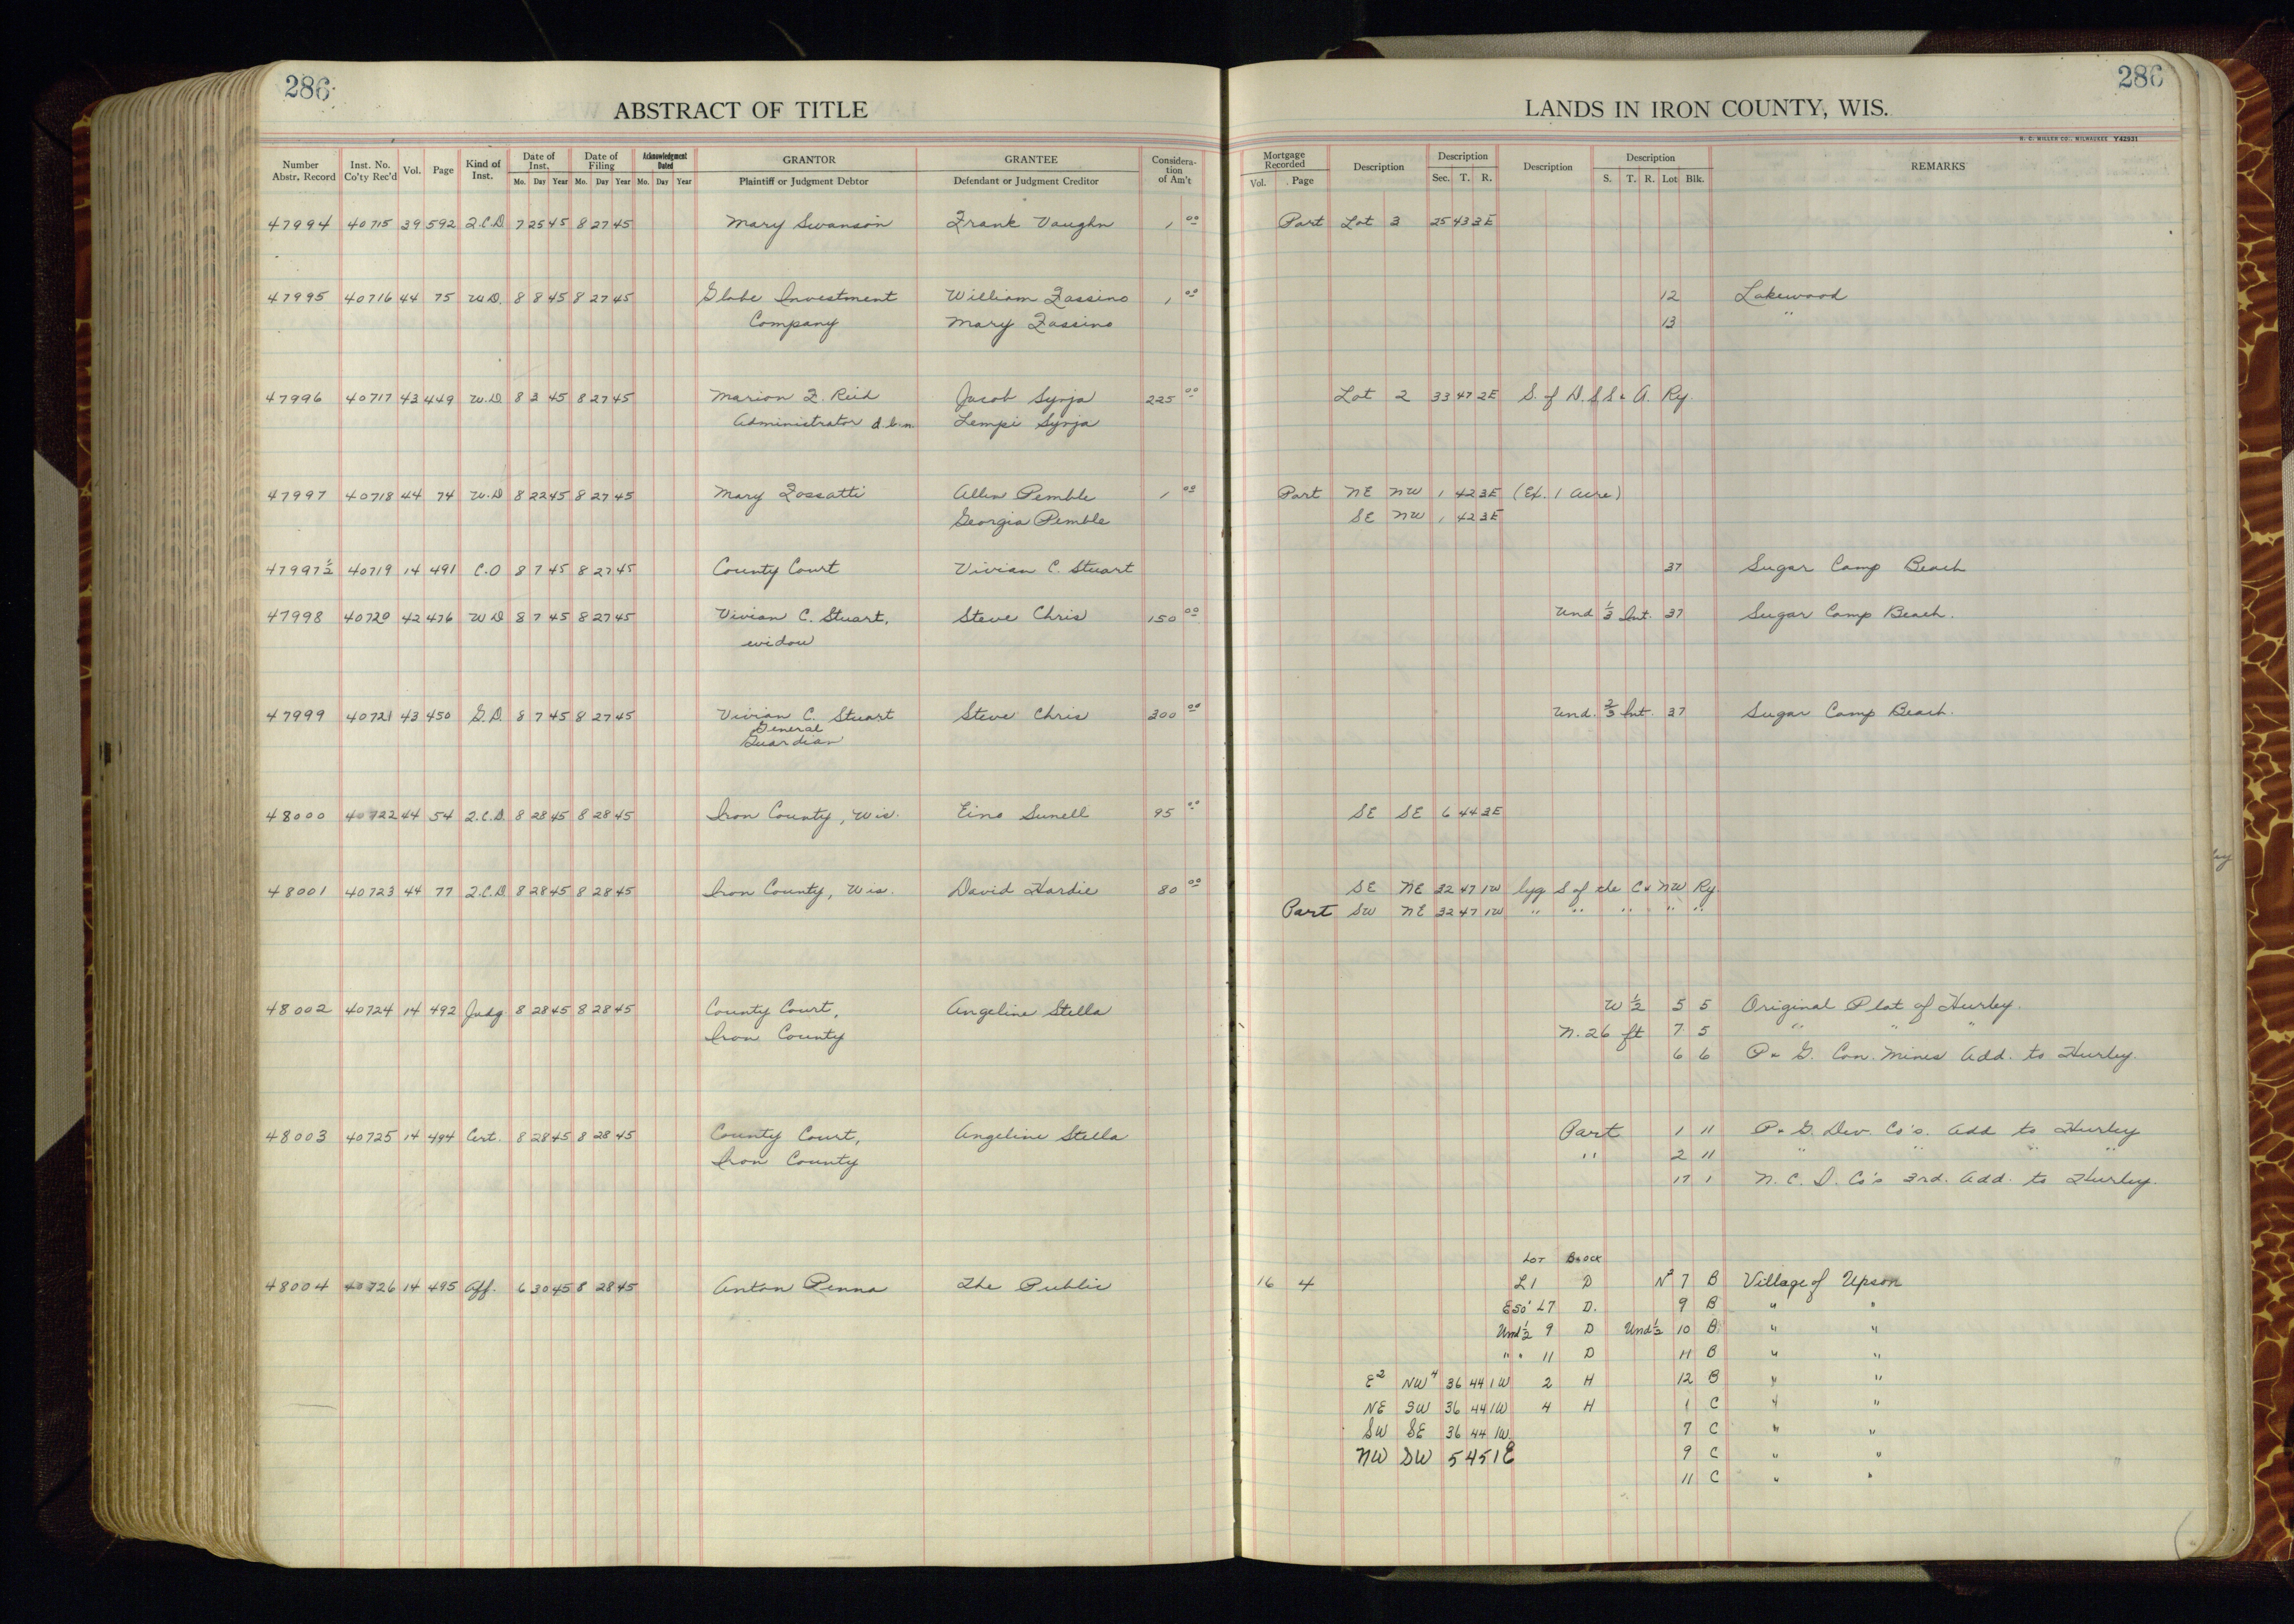 286 286
ABSTRACT OF TITLE LANDS IN IRON COUNTY, WIS.
H. C. MILLER CO., MILWAUKEE Y42931
Number Abstr. Record Inst. No. Co'ty Rec'd Vol. Page Kind of Inst. Date of Inst. Mo. Day Year Date of Filing Mo. Day Year Acknowledgment Dated Mo. Day Year GRANTOR Plaintiff or Judgment Debtor GRANTEE Defendant or Judgment Creditor Consideration of Am't Mortgage Recorded Vol. Page Description Description Sec. T. R. Description Description S. T. R. Lot Blk. REMARKS
47994 40715 39 592 Q.C.D. 7 25 45 8 27 45 Mary Swanson Frank Vaughn 1 00 Part Lot 3 25 43 3E
47995 40716 44 75 W.D. 8 8 45 8 27 45 Globe Investment William Fassino 1 00 12 Lakewood
Company Mary Fassino 13 "
47996 40717 43 449 W.D. 8 3 45 8 27 45 Marion F. Reid Jacob Syrja 225 00 Lot 2 33 47 2E S. of D.S.S. & A. Ry.
Administrator d.b.n. Lempi Syrja
47997 40718 44 74 W.D 8 22 45 8 27 45 Mary Fossatti Allen Pemble 1 00 Part NE NW 1 42 3E (Ex. 1 Acre)
Georgia Pemble SE NW 1 42 3E
47997½ 40719 14 491 C.O 8 7 45 8 27 45 County Court Vivian C. Stuart 37 Sugar Camp Beach
47998 40720 42 476 W D 8 7 45 8 27 45 Vivian C. Stuart, Steve Chris 150 00 Und 1/3 Int. 37 Sugar Camp Beach.
widow
47999 40721 43 450 G.D. 8 7 45 8 27 45 Vivian C. Stuart Steve Chris 300 00 Und. 2/3 Int. 37 Sugar Camp Beach.
General
Guardian
48000 40722 44 54 Q.C.D. 8 28 45 8 28 45 Iron County, Wis. Eino Sunell 95 00 SE SE 6 44 3E
48001 40723 44 77 Q.C.D. 8 28 45 8 28 45 Iron County, Wis. David Hardie 80 00 SE NE 32 47 1W lyg S of the C & NW Ry.
Part SW NE 32 47 1W " " " " "
48002 40724 14 492 Judg. 8 28 45 8 28 45 County Court, Angeline Stella W ½ 5 5 Original Plat of Hurley.
Iron County N. 26 ft 7 5 " " "
6 6 P & G. Con. Mines Add. to Hurley.
48003 40725 14 494 Cert. 8 28 45 8 28 45 County Court, Angeline Stella Part 1 11 P & G. Dev. Co's. Add to Hurley
Iron County " 2 11 " " " "
17 1 N. C. D. Co's 3rd. Add. to Hurley.
LOT BLOCK
48004 40726 14 495 Aff. 6 30 45 8 28 45 Anton Penna The Public 16 4 L1 D N² 7 B Village of Upson
E50' L7 D. 9 B " "
Und½ 9 D Und½ 10 B " "
" " 11 D 11 B " "
E² NW⁴ 36 44 1W 2 H 12 B " "
NE SW 36 44 1W 4 H 1 C " "
SW SE 36 44 1W 7 C " "
NW SW 5 45 1E 9 C " "
11 C " "